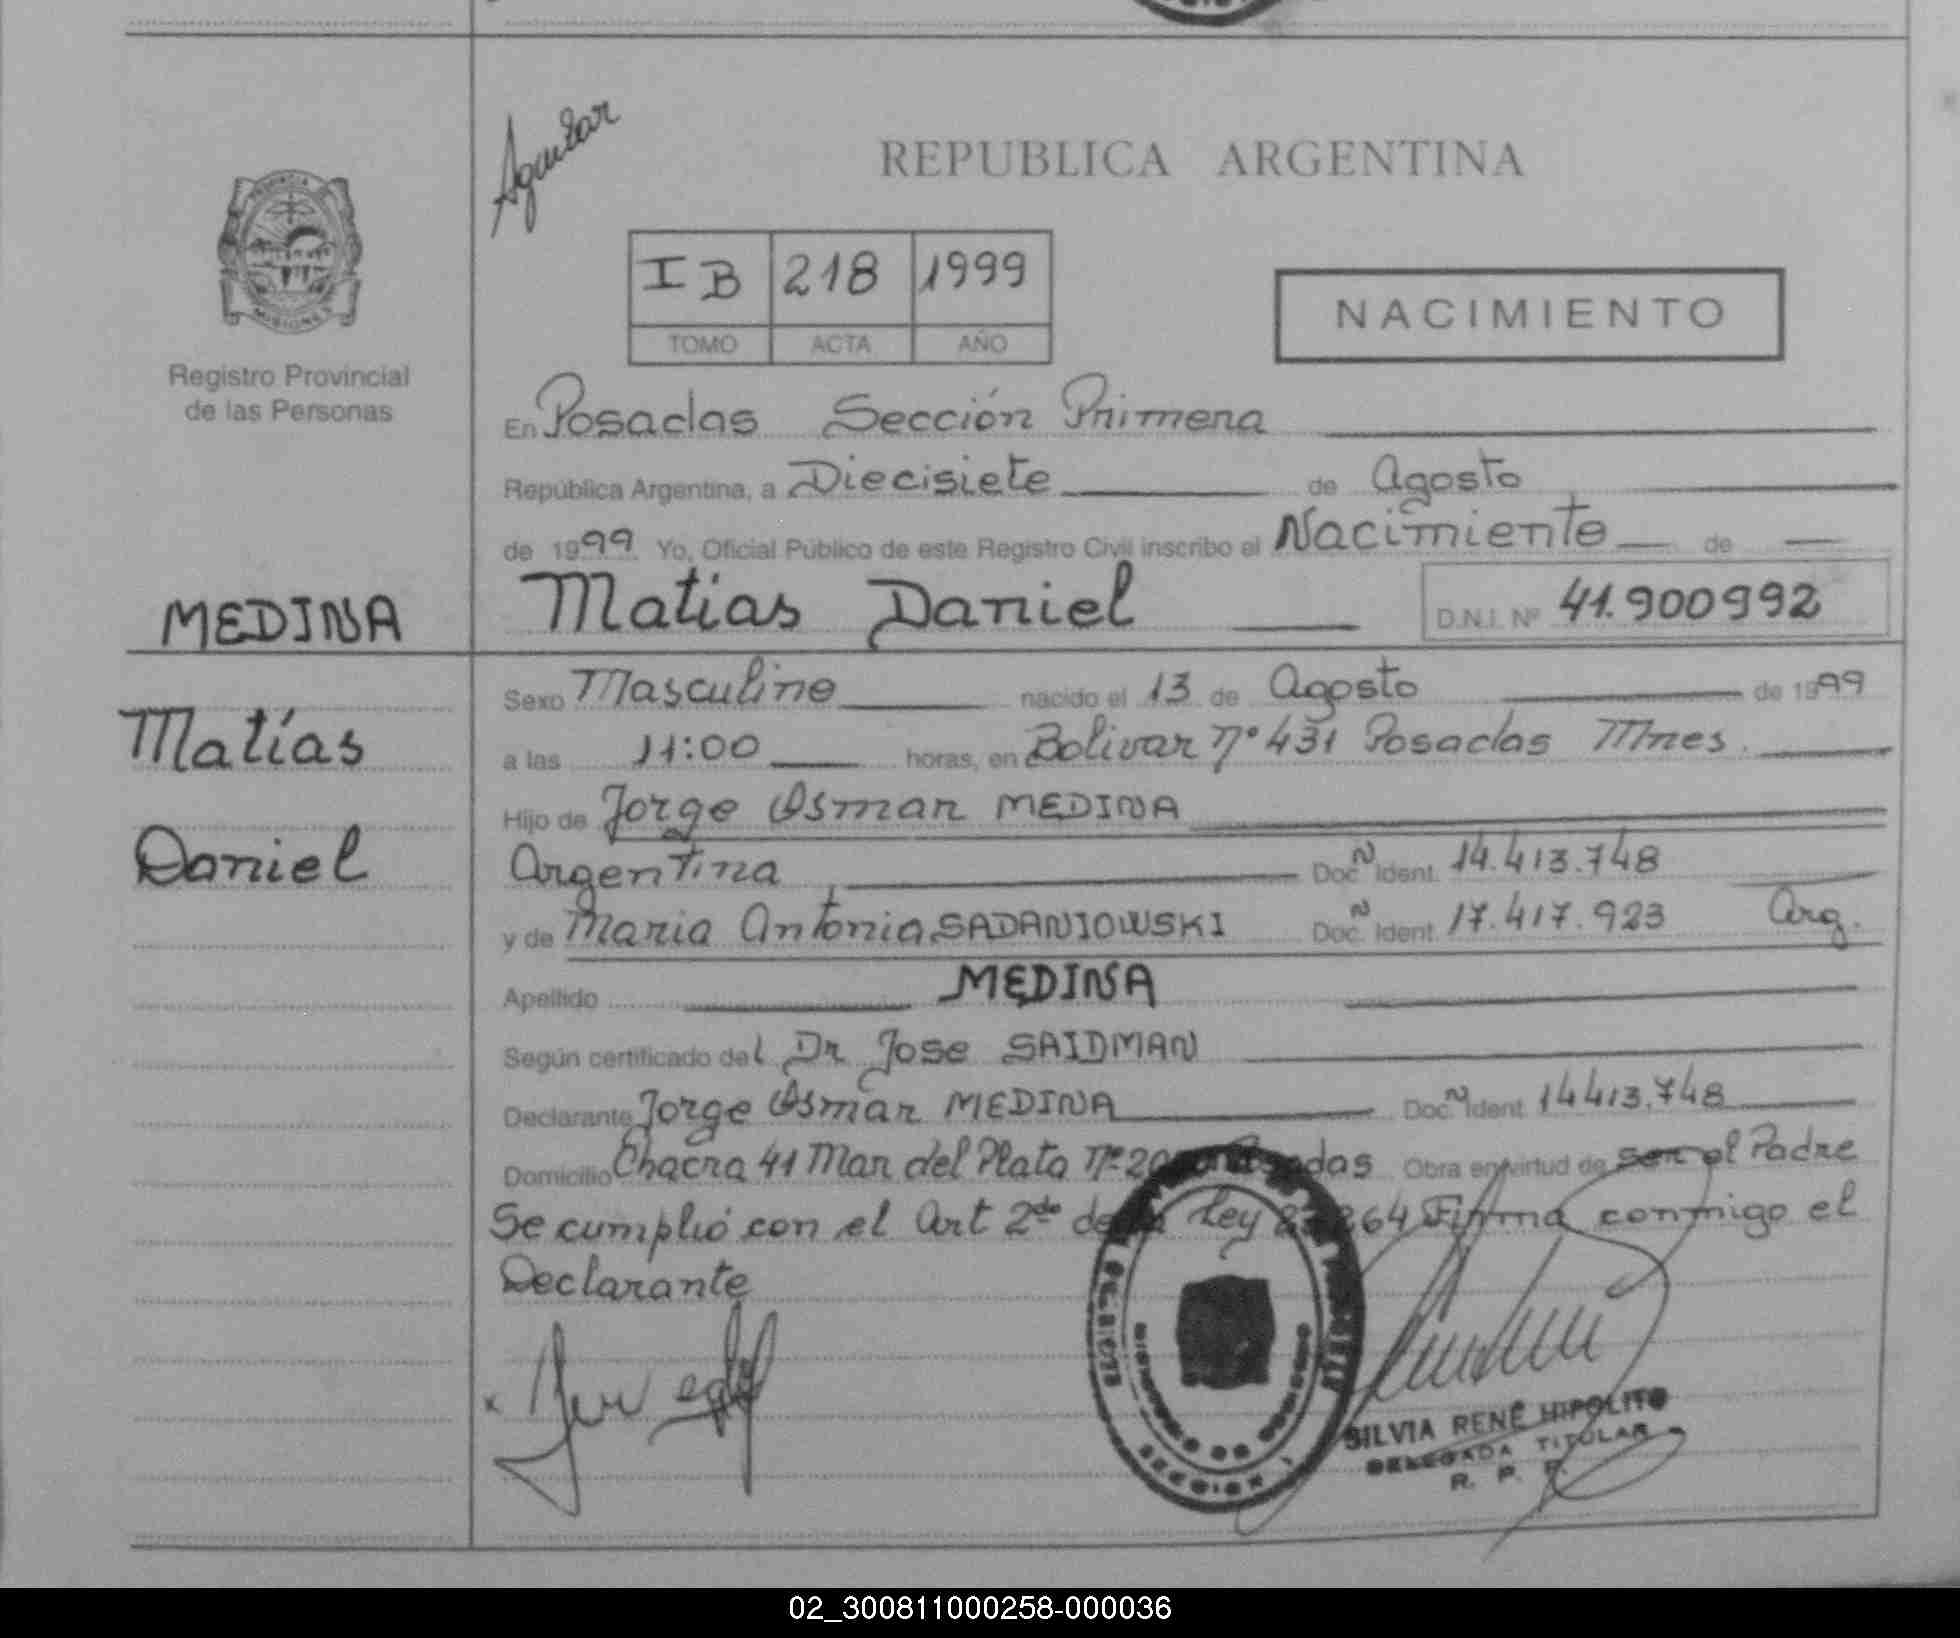 Aguilar
REPUBLICA ARGENTINA
PROVINCIA DE
MISIONES
Registro Provincial
de las Personas
I B 218 1999
TOMO ACTA AÑO
NACIMIENTO
En Posadas Sección Primera
República Argentina, a Diecisiete de Agosto
de 1999 Yo, Oficial Público de este Registro Civil inscribo el Nacimiento de
MEDINA
Matías
Daniel
Matias Daniel
D.N.I. Nº 41.900992
Sexo Masculino nacido el 13 de Agosto de 1999
a las 11:00 horas, en Bolivar Nº 431 Posadas Mnes.
Hijo de Jorge Osmar MEDINA
Argentina Doc. Ident. 14.413.748
y de Maria Antonia SADANIOWSKI Doc. Ident. 17.417.923 Arg.
Apellido MEDINA
Según certificado del Dr Jose SAIDMAN
Declarante Jorge Osmar MEDINA Doc. Ident. 14413.748
Domicilio Chacra 41 Mar del Plata Nº Posadas Obra en virtud de ser el Padre
Se cumplió con el Art 2do de la Ley Firma conmigo el
Declarante
SECCION 1
SILVIA RENÉ HIPOLITO
DELEGADA TITULAR
R. P. P.
02_300811000258-000036